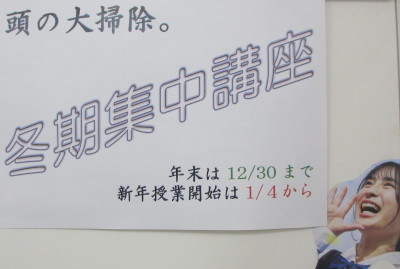 頭の大掃除。
冬期集中講座
年末は 12/30 まで
新年授業開始は 1/4 から